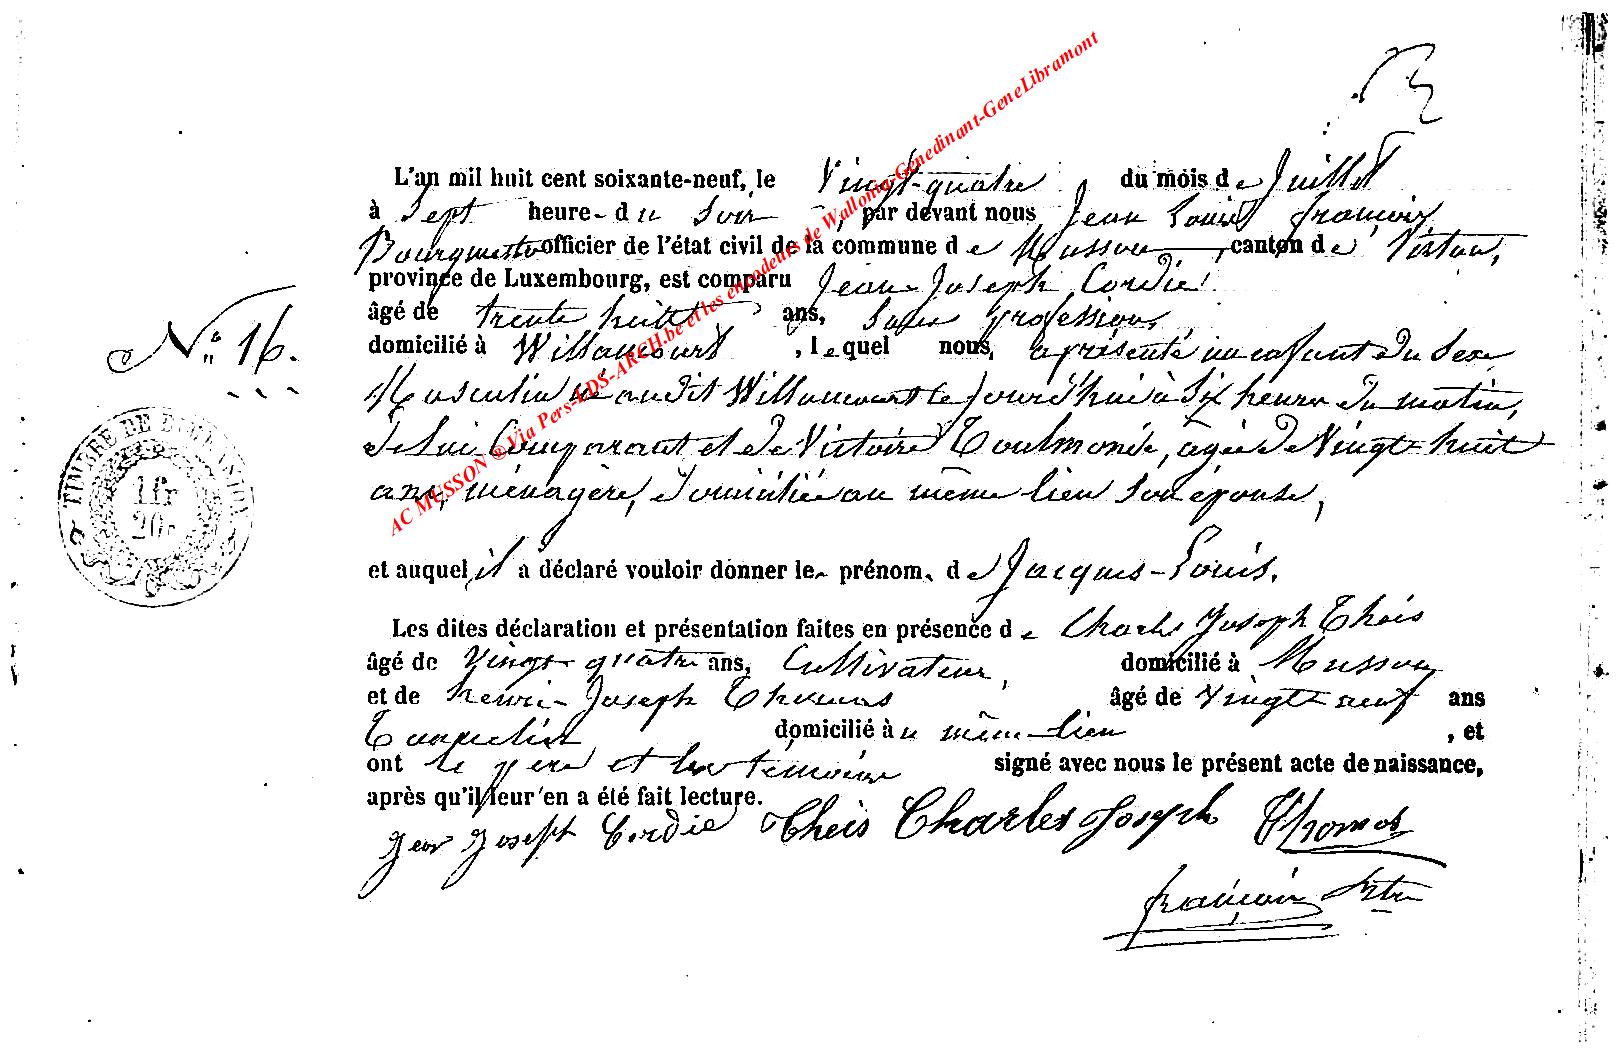 L'an mil huit cent soixante-neuf, le Vingt-quatre du mois de Juillet
à Sept heure- du Soir, par devant nous Jean Louis François
officier de l'état civil de la commune de Musson, canton de Virton,
province de Luxembourg, est comparu Jean-Joseph Cordié
âgé de trente huit ans, Sans profession,
domicilié à Willancourt, lequel nous, a présenté un enfant du Sexe
Masculin né audit Willancourt le jourd'hui à Six heures du matin,
de lui Comparant et de Victoire Toulmonde, agée de Vingt-huit
ans, ménagère, domiciliée au même lieu Son épouse,
et auquel il a déclaré vouloir donner le- prénom, de Jacques-Louis.
Les dites déclaration et présentation faites en présence de Charles Joseph Theis
âgé de Vingt-quatre ans, Cultivateur, domicilié à Musson
et de henri-Joseph Thomas âgé de Vingt neuf ans
domicilié au même lieu, et
ont le père et les témoins signé avec nous le présent acte de naissance,
après qu'il leur en a été fait lecture.
Jean Joseph Cordié Theis Charles Joseph Thomas
françois
N° 16.
TIMBRE DE DIMENSION
1 fr
20c
AC MUSSON ® Via Pers-ADS-ARCH.be et les encodeurs de Wallonia-Genedinant-GeneLibramont